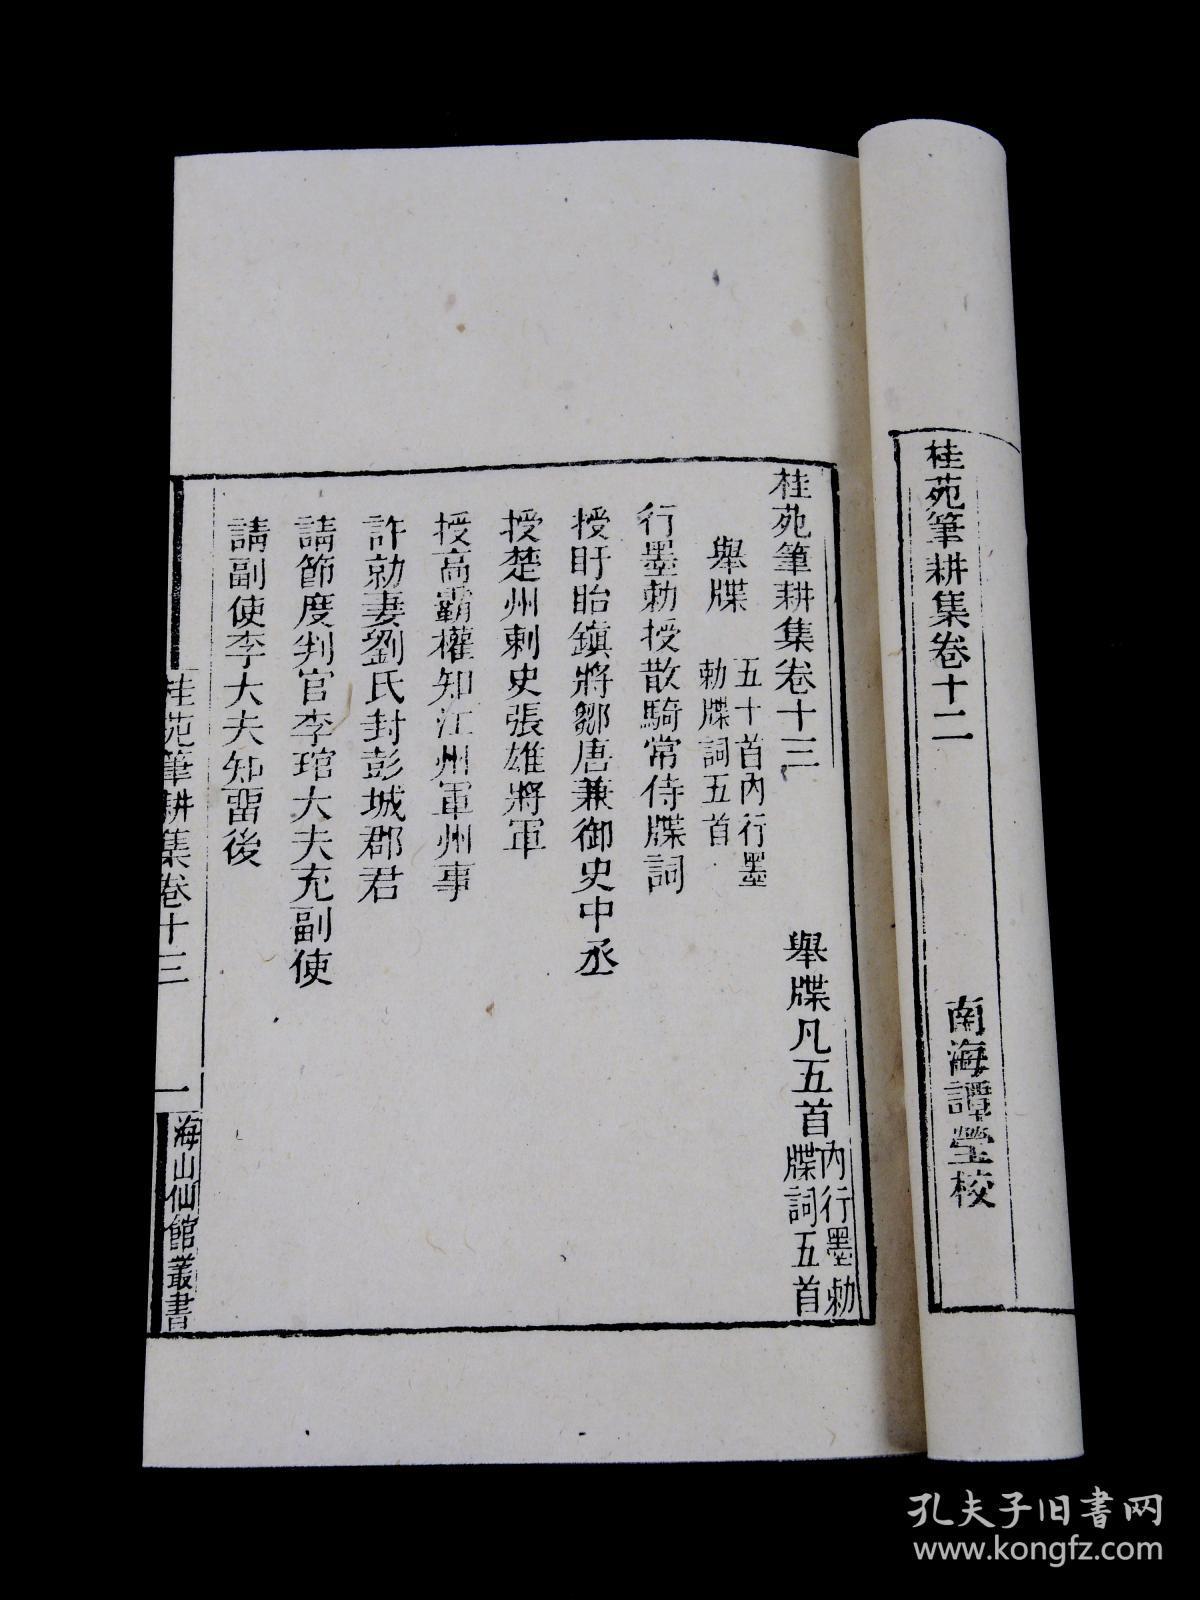 桂苑筆耕集卷十二
南海譚瑩校
桂苑筆耕集卷十三
舉牒凡五首內行墨勑牒詞五首
舉牒
五十首內行墨
勑牒詞五首
行墨勑授散騎常侍牒詞
授盱眙鎮將鄒唐兼御史中丞
授楚州刺史張雄將軍
授高霸權知江州軍州事
許勍妻劉氏封彭城郡君
請節度判官李琯大夫充副使
請副使李大夫知留後
桂苑筆耕集卷十三
一
海山仙館叢書
孔夫子旧书网
www.kongfz.com